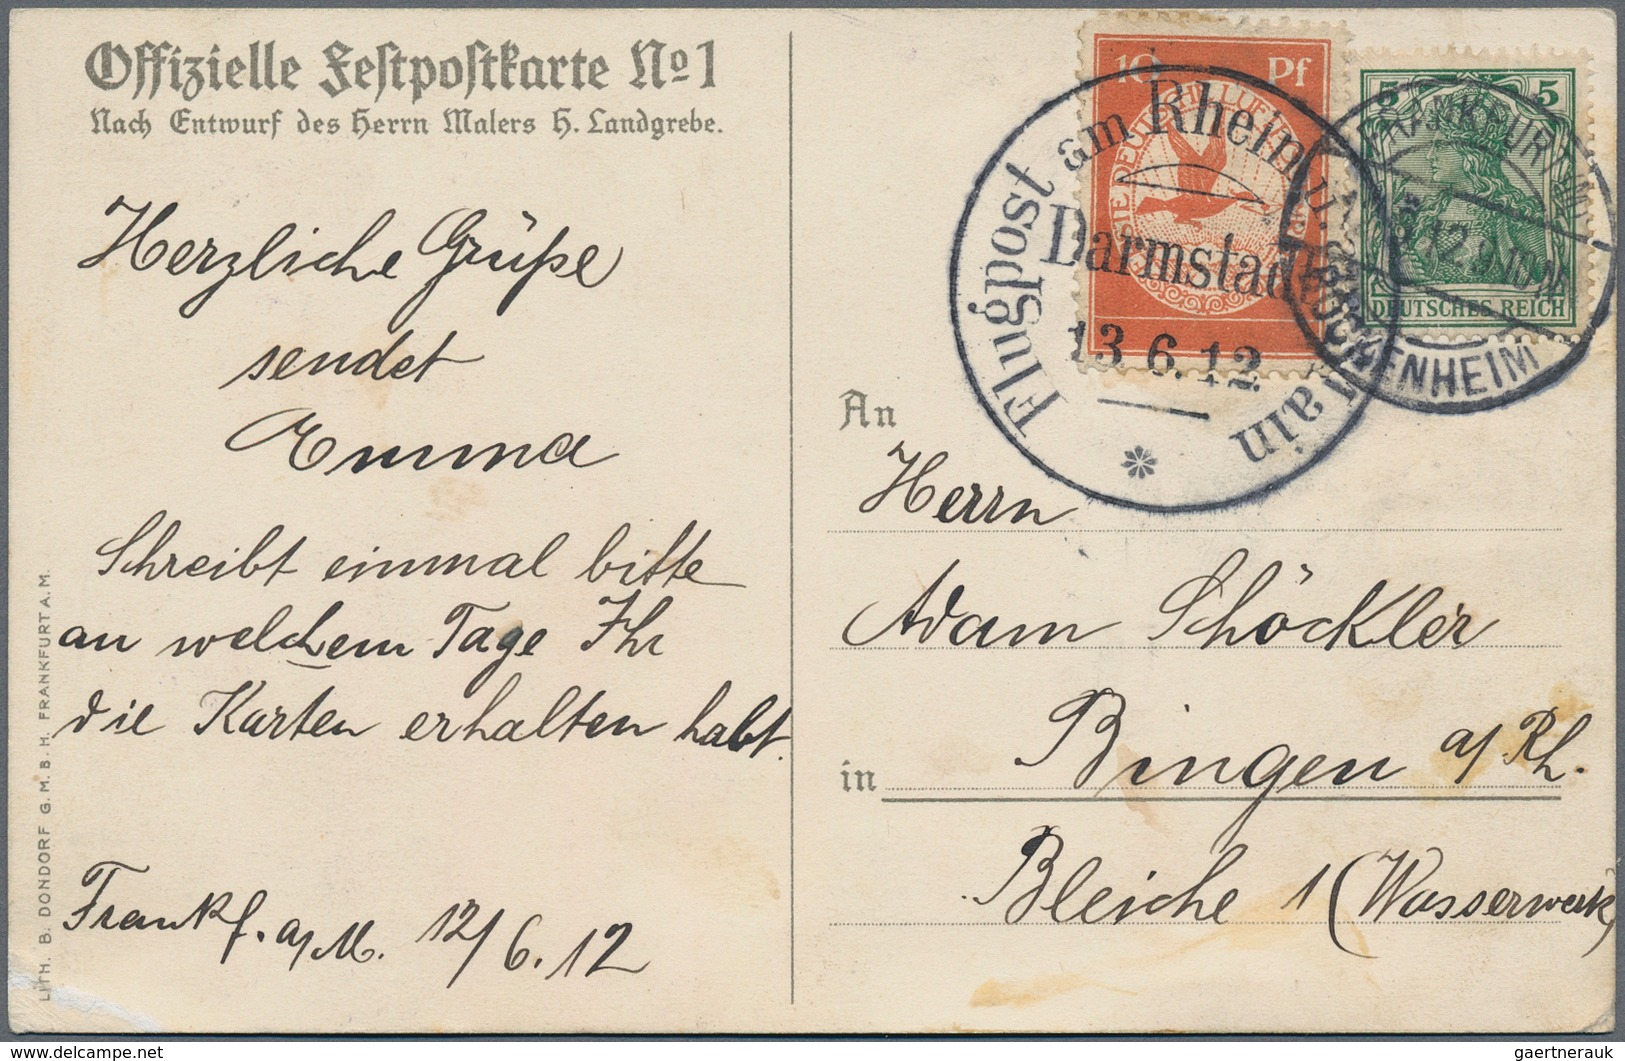 Offizielle Festpostkarte No 1
Nach Entwurf des Herrn Malers H. Landgrebe.
Herzliche Grüße
sendet
Emma
Schreibt einmal bitte
an welchem Tage Ihr
die Karten erhalten habt.
Frankf. a/M. 12/6.12
LITH. B. DONDORF G.M.B.H. FRANKFURT A.M.
10 Pf
Flugpost am Rhein u. Main
Darmstadt
13.6.12.
5 5
DEUTSCHES REICH
FRANKFURT
BOCKENHEIM
An
Herrn
Adam Schöckler
in Bingen a/Rh.
Bleiche 1 (Wasserwerk)
delcampe.net
gaertnerauk